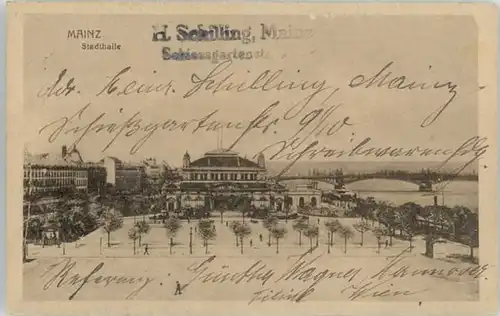 MAINZ
Stadthalle
H. Schilling, Mainz
Schiessgartenst
Adr. Heinr. Schilling, Mainz
Schießgartenstr. 9/10
Schreibwarenhdlg
Referenz: Günther Wagner, Hannover
Filiale Wien